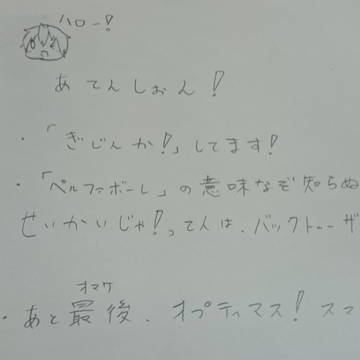 ハロー!
あてんしょん!
・「ぎじんか!」してます!
・「ベルファボーレ」の意味なぞ知らぬ
せいかいじゃ!ってんは、バックトゥーザ
オマケ
・あと最後、オプティマス!スマ